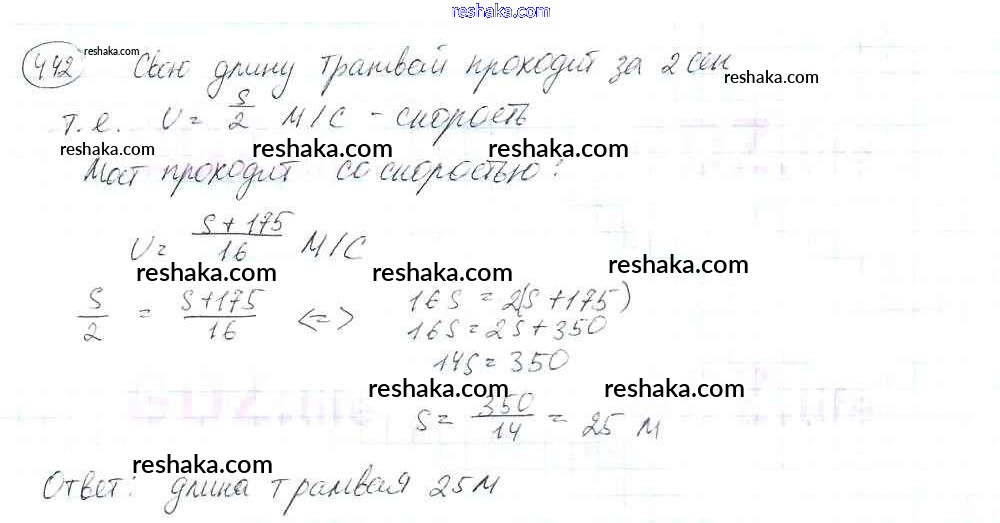 reshaka.com
442 reshaka.com Свою длину трамвай проходит за 2 сек
reshaka.com
т.е. V = S/2 м/с - скорость
reshaka.com reshaka.com reshaka.com
Мост проходит со скоростью:
V = (S+175)/16 м/с
reshaka.com reshaka.com reshaka.com
S/2 = (S+175)/16 <=> 16S = 2(S+175)
16S = 2S+350
14S = 350
reshaka.com reshaka.com
S = 350/14 = 25 м
reshaka.com
Ответ: длина трамвая 25м